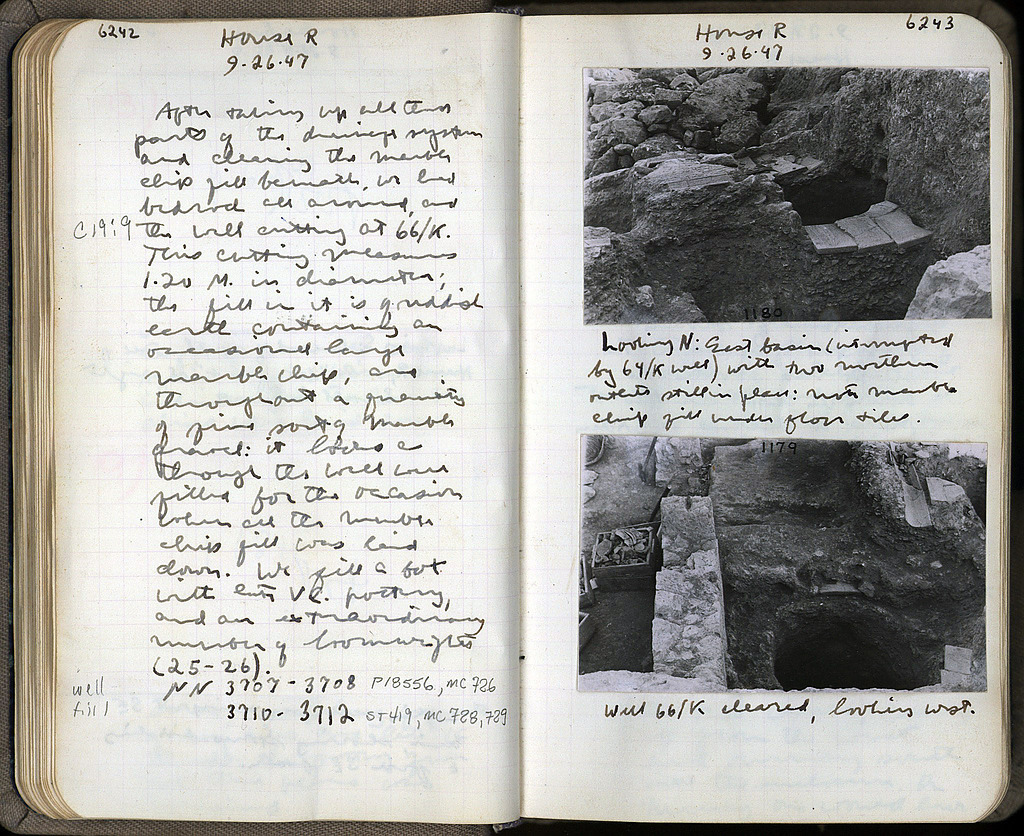 6242
House R
9-26-47
After taking up all these
parts of the drainage system
and clearing the marble
chip fill beneath, we had
bedrock all around, and
C 19:9
the well cutting at 66/K.
This cutting measures
1.20 M. in diameter;
the fill in it is reddish
earth containing an
occasional large
marble chip, and
throughout a quantity
of fine sort of marble
gravel: it looks as
though the well was
filled for the occasion
when all the marble
chip fill was laid
down. We fill a box
with late V c. pottery,
and an extraordinary
number of loomweights
(25-26).
well
fill
NN 3707 - 3708 P18556, MC 726
3710 - 3712 ST 419, MC 728, 729
6243
House R
9-26-47
1180
Looking N: East basin (interrupted
by 64/K well) with two northern
outlets still in place: note marble
chip fill under floor tiles.
1179
Well 66/K cleared, looking west.